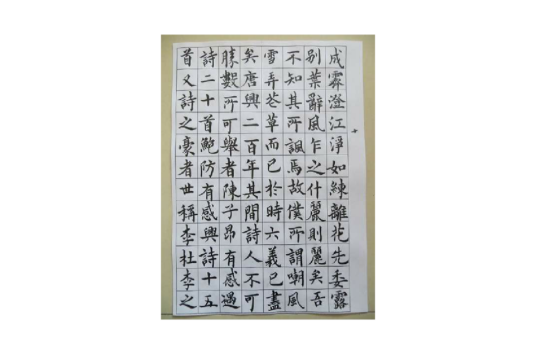 成霽澄江淨如練離花先委露
别葉辭風乍之什麗則麗矣吾
不知其所諷焉故僕所謂嘲風
雪弄花草而已於時六義已盡
矣唐興二百年其間詩人不可
勝數所可舉者陳子昂有感遇
詩二十首鮑防有感興詩十五
首又詩之豪者世稱李杜李之